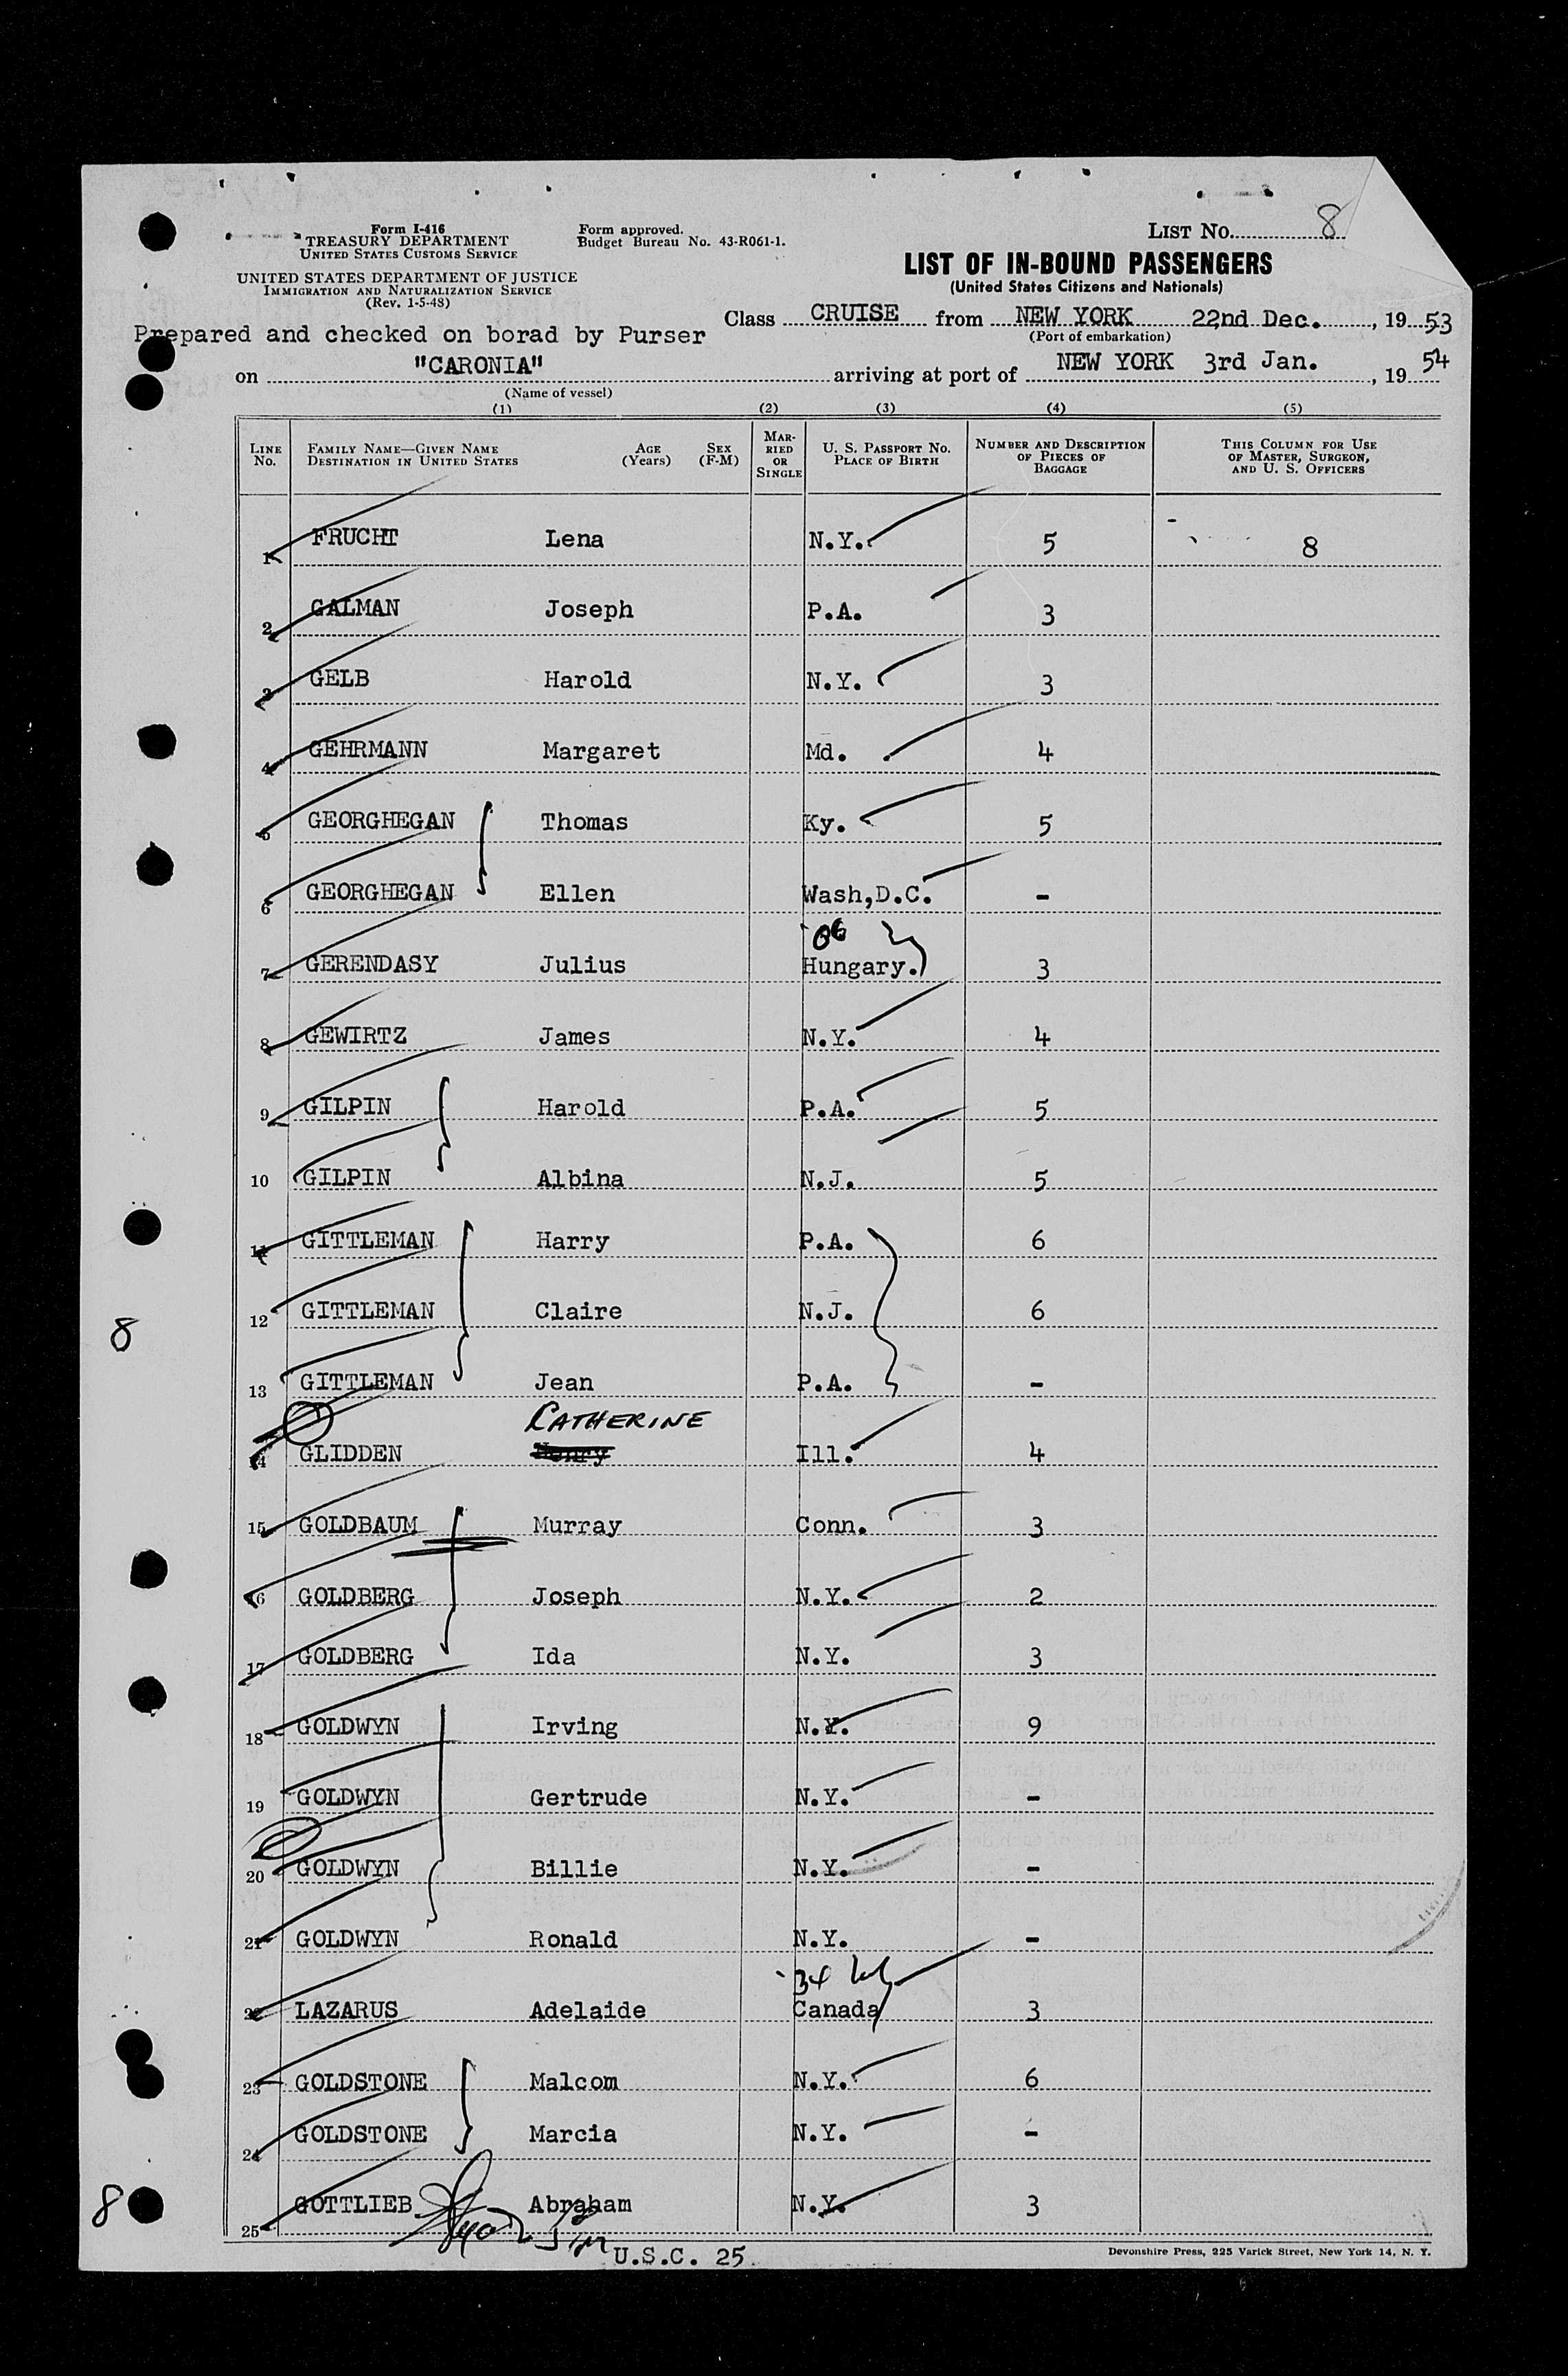 Form I-416
TREASURY DEPARTMENT
UNITED STATES CUSTOMS SERVICE
UNITED STATES DEPARTMENT OF JUSTICE
IMMIGRATION AND NATURALIZATION SERVICE
(Rev. 1-5-48)
Form approved.
Budget Bureau No. 43-R061-1.
LIST NO. 8
LIST OF IN-BOUND PASSENGERS
(United States Citizens and Nationals)
Class CRUISE from NEW YORK 22nd Dec., 1953
(Port of embarkation)
Prepared and checked on borad by Purser
on "CARONIA" arriving at port of NEW YORK 3rd Jan., 1954
(Name of vessel)
(1) (2) (3) (4) (5)
LINE No. FAMILY NAME—GIVEN NAME DESTINATION IN UNITED STATES AGE (Years) SEX (F-M) MARRIED OR SINGLE U. S. PASSPORT NO. PLACE OF BIRTH NUMBER AND DESCRIPTION OF PIECES OF BAGGAGE THIS COLUMN FOR USE OF MASTER, SURGEON, AND U. S. OFFICERS
1 FRUCHT Lena N.Y. 5 8
2 GALMAN Joseph P.A. 3
3 GELB Harold N.Y. 3
4 GEHRMANN Margaret Md. 4
5 GEORGHEGAN Thomas Ky. 5
6 GEORGHEGAN Ellen Wash,D.C. -
06
7 GERENDASY Julius Hungary. 3
8 GEWIRTZ James N.Y. 4
9 GILPIN Harold P.A. 5
10 GILPIN Albina N.J. 5
11 GITTLEMAN Harry P.A. 6
12 GITTLEMAN Claire N.J. 6
8
13 GITTLEMAN Jean P.A. -
CATHERINE
14 GLIDDEN Henry Ill. 4
15 GOLDBAUM Murray Conn. 3
16 GOLDBERG Joseph N.Y. 2
17 GOLDBERG Ida N.Y. 3
18 GOLDWYN Irving N.Y. 9
19 GOLDWYN Gertrude N.Y. -
20 GOLDWYN Billie N.Y. -
21 GOLDWYN Ronald N.Y. -
34
22 LAZARUS Adelaide Canada 3
23 GOLDSTONE Malcom N.Y. 6
24 GOLDSTONE Marcia N.Y. -
8
25 GOTTLIEB Abraham N.Y. 3
U.S.C. 25.
Devonshire Press, 225 Varick Street, New York 14, N. Y.